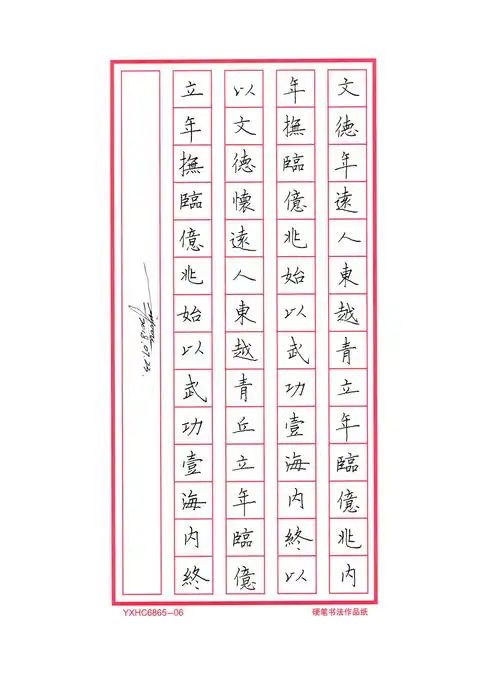 文德年遠人東越青立年臨億兆内
年撫臨億兆始以武功壹海内終以
以文德懷遠人東越青丘立年臨億
立年撫臨億兆始以武功壹海内終
2018.07.25.
YXHC6865-06
硬笔书法作品纸